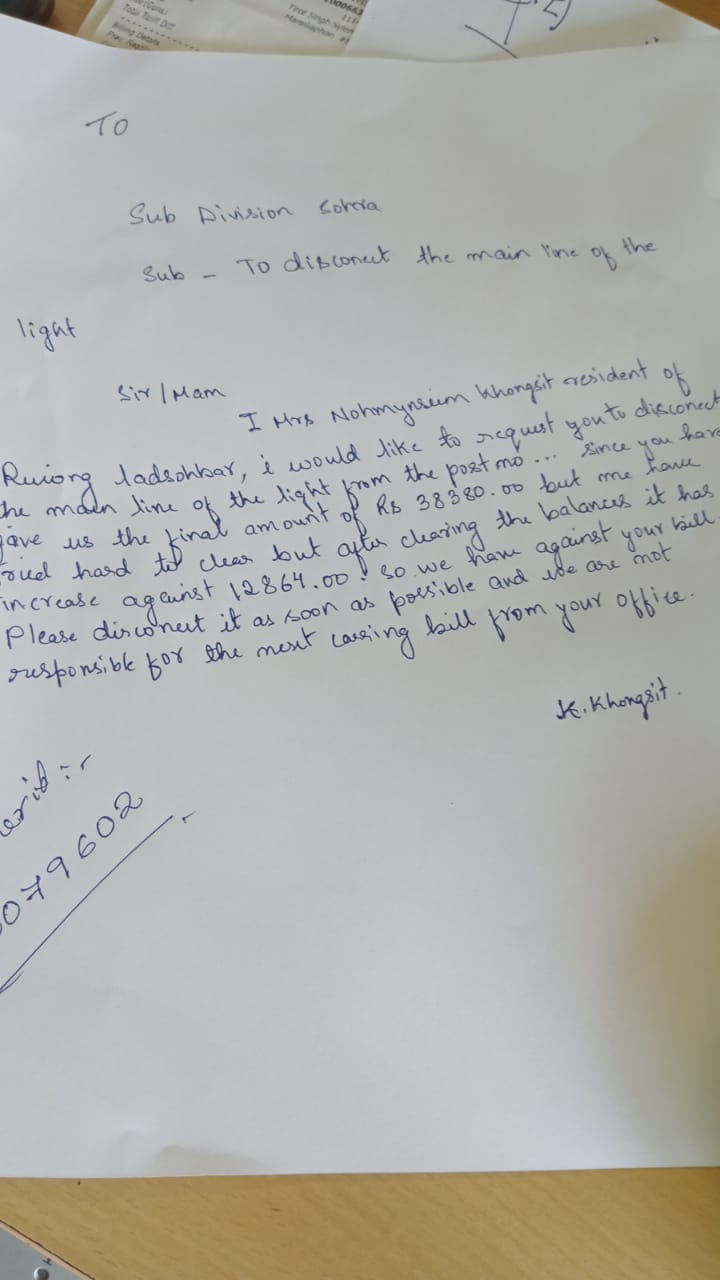 Total Tariff Dct
Billing Details
000663
Tirot Singh Syiem
111
TO
Sub Division Sohra
Sub - TO disconect the main line of the
light
Sir/Mam
I Mrs Nohmynsiem Khongsit resident of
ladsohbar, i would like to request you to disconect
he main line of the light from the post mo... since you have
gave us the final amount of Rs 38380.00 but me have
ried hard to clear but after clearing the balances it has
increase against 12864.00. so we have against your bill
Please disconect it as soon as possible and we are not
responsible for the next bill from your office.
K. Khongsit.
erid :-
079602